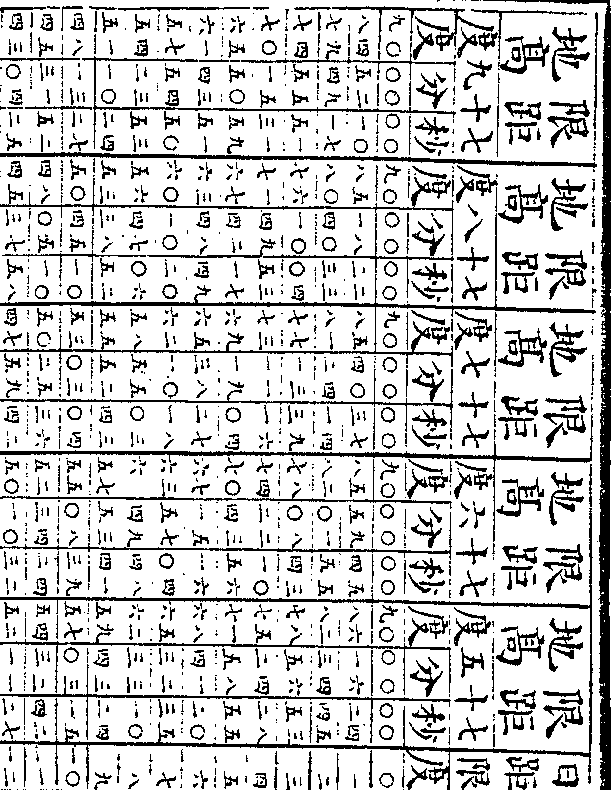 日距限度 ○ 一 二 三 四 五 六 七 八 九 一○ 一一 一二
限距地高
七十五度
度 九○ 八六 八二 七八 七五 七一 六八 六五 六二 五九 五七 五四 五二
分 ○○ 一六 三四 五六 二四 五八 四一 三三 三二 四三 ○三 三二 一一
秒 ○○ 二四 四五 五三 二八 五五 二○ 三五 一○ 三四 一五 四二 二七
限距地高
七十六度
度 九○ 八五 八二 七八 七四 七○ 六七 六三 六 五七 五五 五二 五○
分 ○○ 五九 ○一 ○八 二二 四三 一五 五七 四九 五三 ○八 三四 一○
秒 ○○ 四五 五五 四三 一○ 五六 一六 ○四 三八 四一 三九 二四 三二
限距地高
七十七度
度 九○ 八五 八一 七七 七三 六九 六五 六二 五八 五五 五三 五○ 四七
分 ○○ 四○ 二四 一三 一一 一九 三八 一○ 五五 五二 ○三 二五 五九
秒 ○○ 三七 一四 三九 一六 ○四 二七 一八 ○三 四三 ○四 三六 四二
限距地高
七十八度
度 九○ 八五 八○ 七六 七一 六七 六三 六○ 五六 五三 五○ 四八 四五
分 ○○ 一八 四○ 一○ 四九 四二 四八 一○ 四七 三八 四五 ○五 三七
秒 ○○ 二二 三三 ○四 五三 一七 四九 二○ ○六 五二 一○ 一○ 五八
限距地高
七十九度
度 九○ 八四 七九 七四 七○ 六五 六一 五七 五四 五一 四八 四五 四三
分 ○○ 五二 四九 五五 一五 五○ 四三 五四 二三 一○ 一三 三一 ○四
秒 ○○ 一○ 一七 五一 五三 五九 五一 五○ 五三 二四 二七 五二 二五